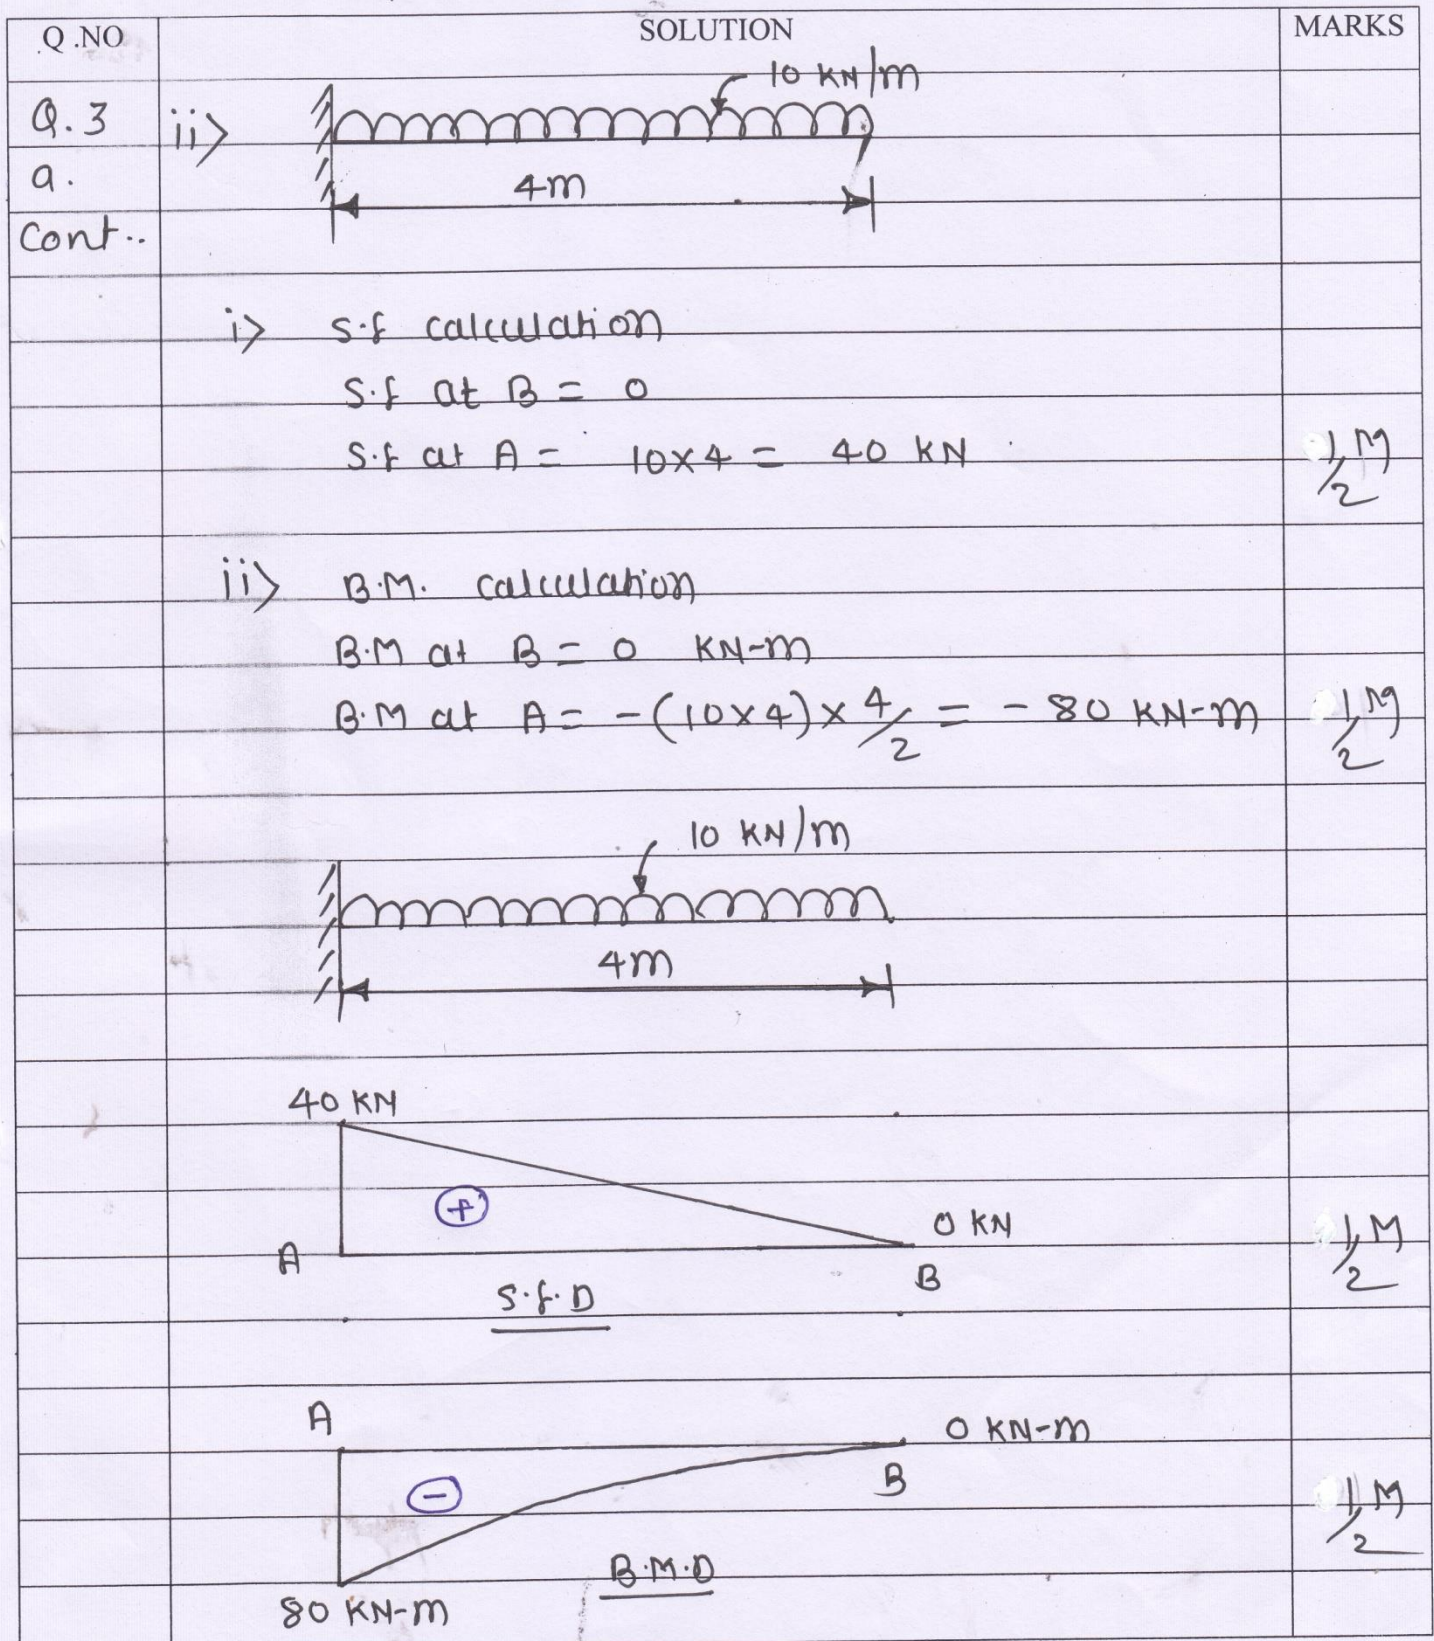 Q.NO SOLUTION MARKS
10 KN/m
Q.3 ii>
a.
4m
Cont..
i> S.f calculation
S.f at B = 0
S.f at A = 10×4 = 40 KN 1/2 M
ii> B.M. calculation
B.M at B = 0 KN-m
B.M at A = -(10×4)×4/2 = - 80 KN-m 1/2 M
10 KN/m
4m
40 KN
+
0 KN 1/2 M
A B
S.f.D
A 0 KN-m
B
- 1/2 M
B.M.D
80 KN-m